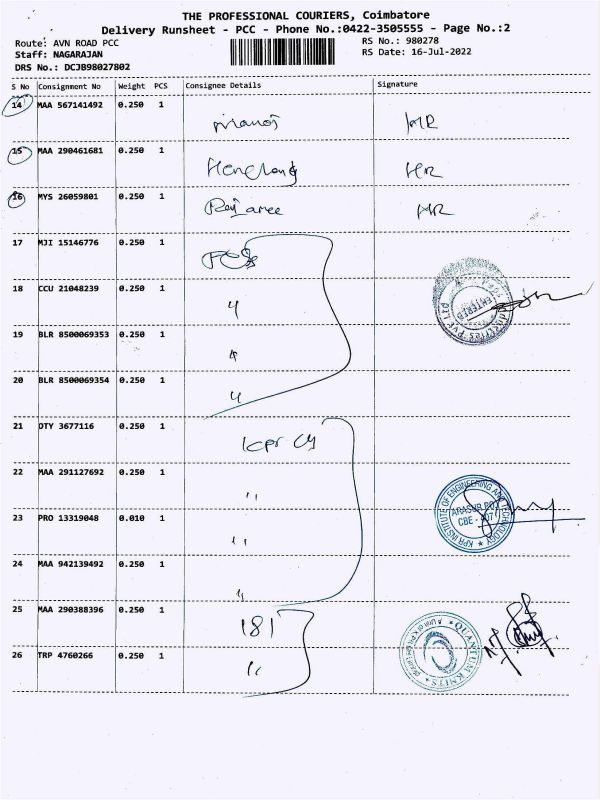 THE PROFESSIONAL COURIERS, Coimbatore
Delivery Runsheet - PCC - Phone No.:0422-3505555 - Page No.:2
Route: AVN ROAD PCC RS No.: 980278
Staff: NAGARAJAN RS Date: 16-Jul-2022
DRS No.: DCJB98027802
S No Consignment No Weight PCS Consignee Details Signature
14 MAA 567141492 0.250 1
Manoj MR
15 MAA 290461681 0.250 1
HR
16 MYS 26059801 0.250 1
MR
17 MJI 15146776 0.250 1
18 CCU 21048239 0.250 1
4
19 BLR 8500069353 0.250 1
4
20 BLR 8500069354 0.250 1
4
ENTERED
PVT Ltd
21 DTY 3677116 0.250 1
kpr
22 MAA 291127692 0.250 1
,,
23 PRO 13319048 0.010 1
,,
24 MAA 942139492 0.250 1
,,
KPR INSTITUTE OF ENGINEERING AND TECHNOLOGY
ARASUR PO
CBE - 407
25 MAA 290388396 0.250 1
181
26 TRP 4760266 0.250 1
,,
QUANTUM KNITS